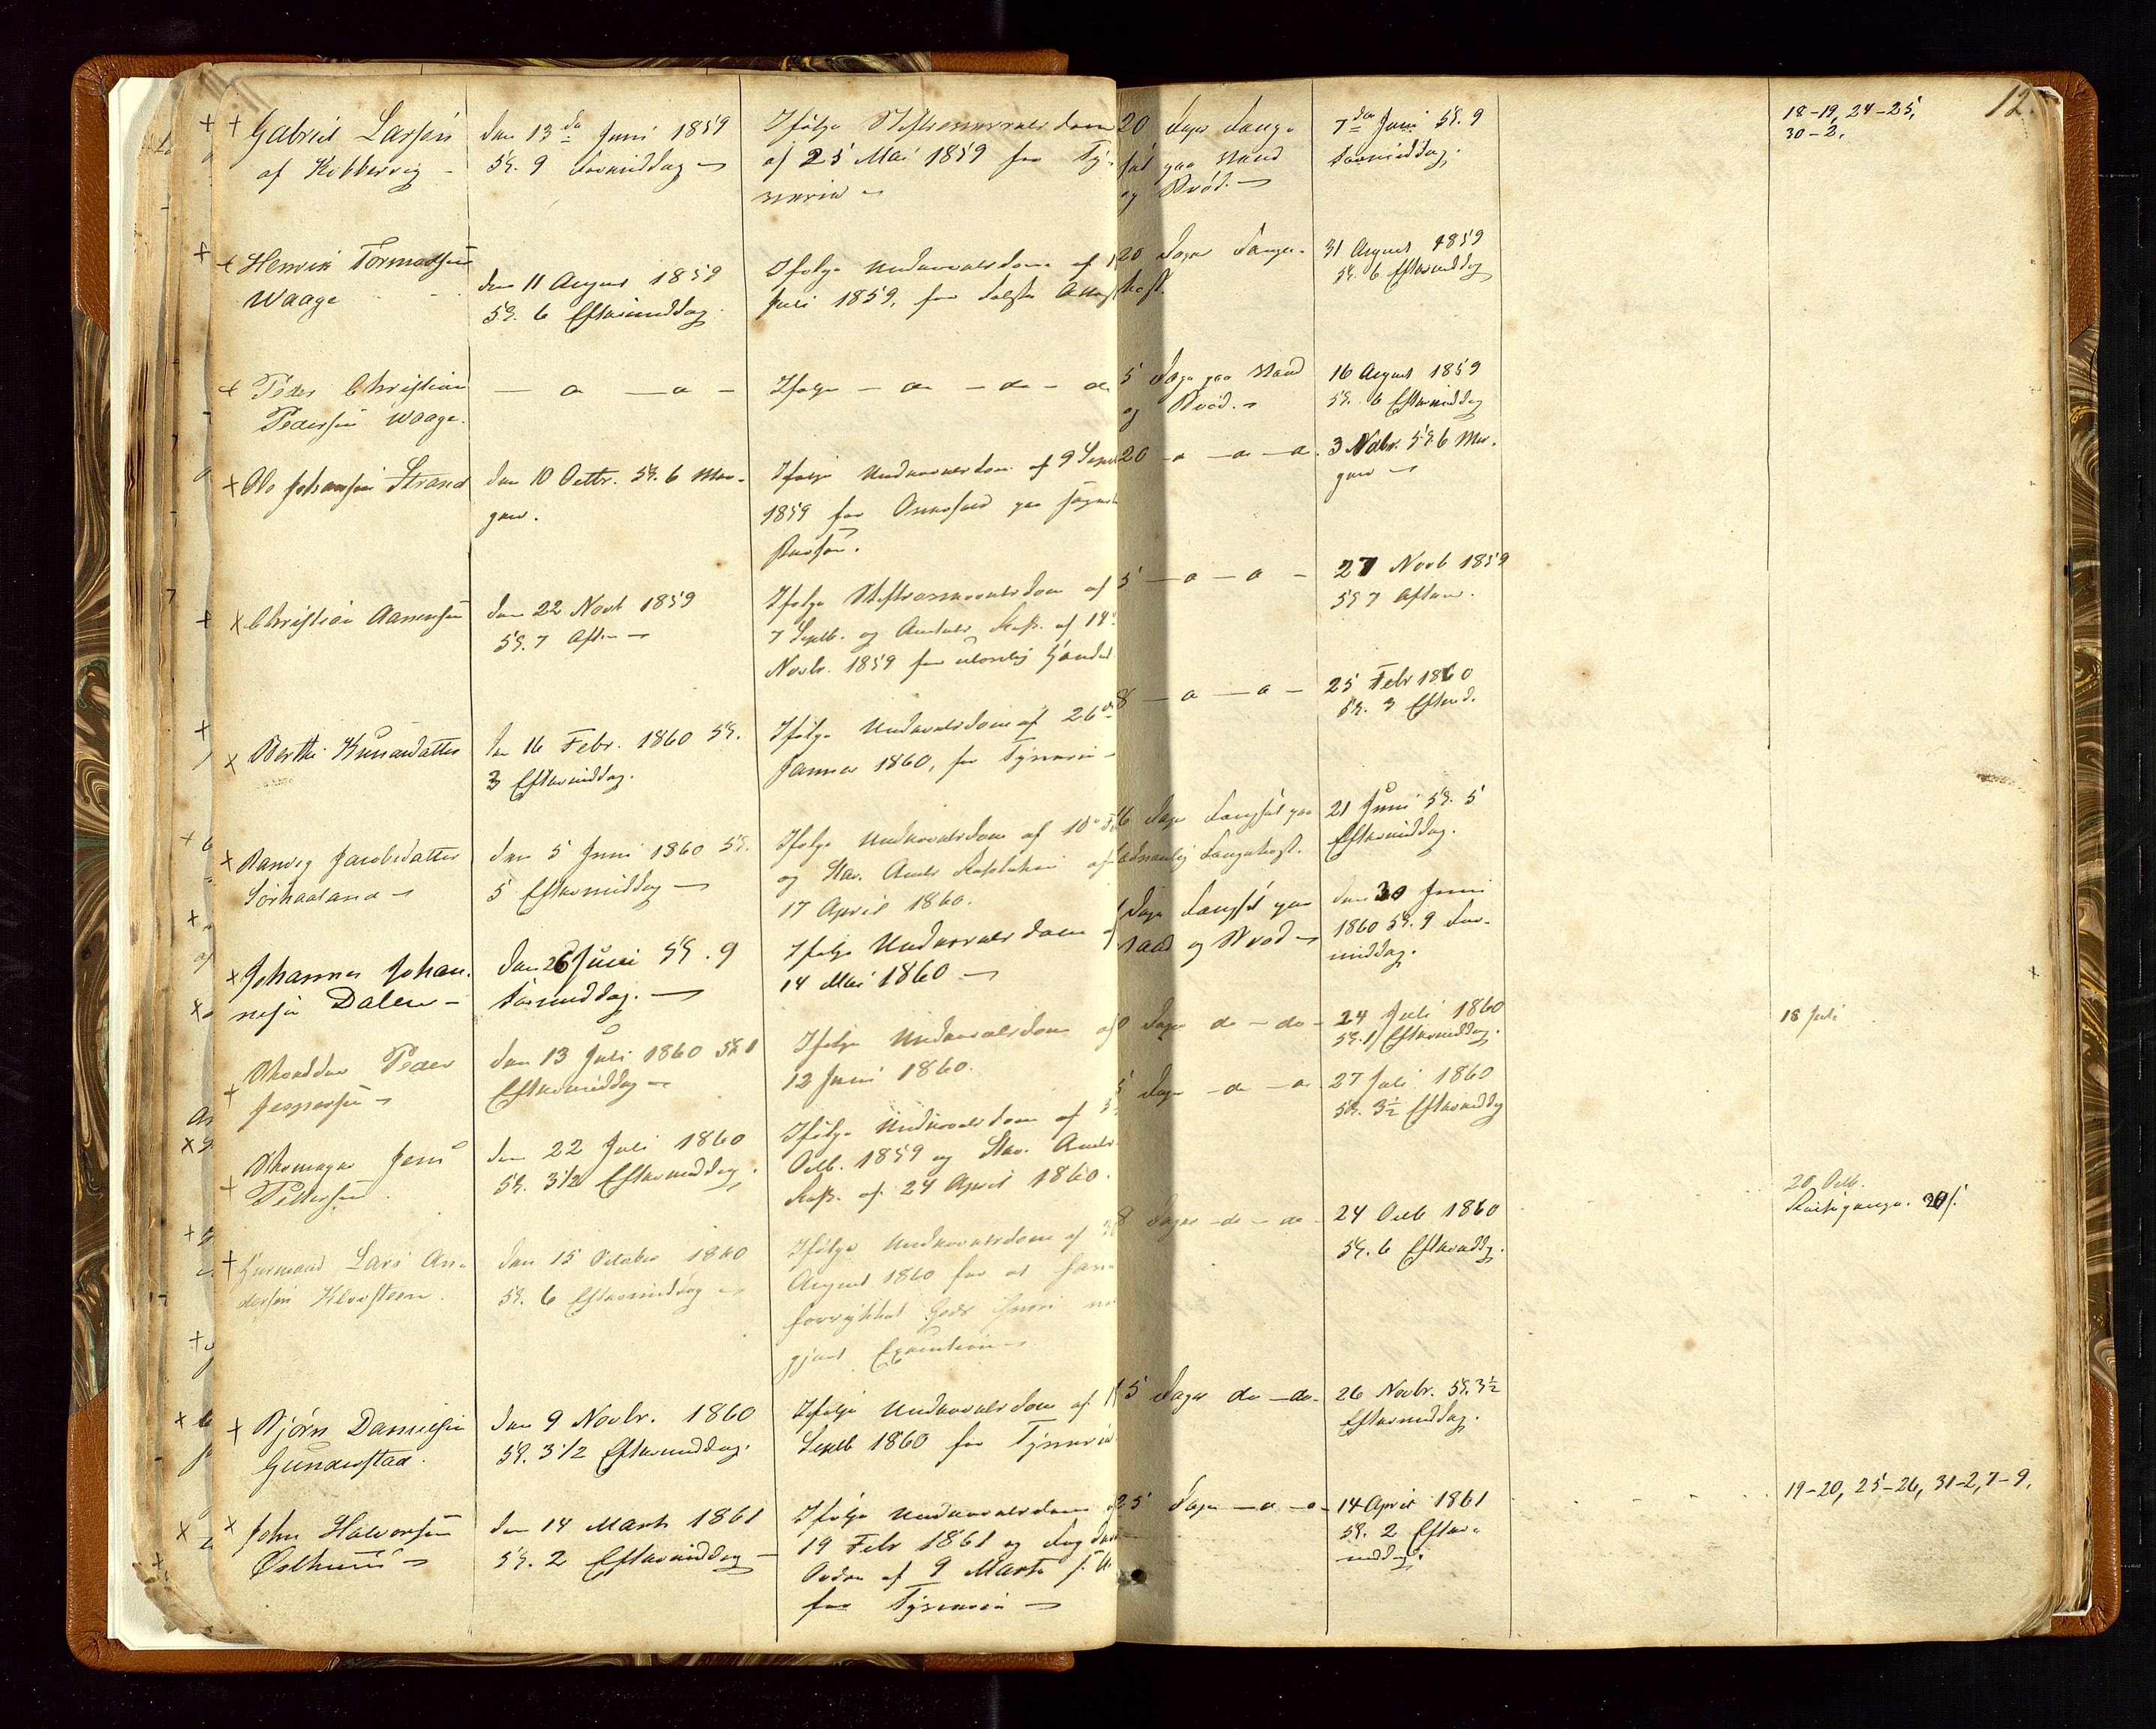 12.
+ Gabriel Larsen
af Kobbervig -
den 13de Juni 1859
Kl. 9 Formiddag
Ifølge Stiftsoverretsdom
af 25 Mai 1859 for Ty-
verie
20 Dages Fæng-
sel paa Vand
og Brød.
7de Juli Kl. 9
Formiddag.
18-19, 24-25,
30-2,
+ Henrik Tormodsen
Waage
den 11 August 1859
Kl. 6 Eftermiddag.
Ifølge Underretsdom af
Juli 1859, for falsk Attest
20 Dages Fange-
kost.
31 August 1859
Kl. 6 Eftermiddag
+ Peder Christian
Pedersen Waage.
— a — a —
Ifølge — a — do — a
5 Dage paa Vand
og Brød.
16 August 1859
Kl. 6 Eftermiddag
+ Ole Johansen Strand
den 10 Octbr. Kl. 6 Mor-
gen.
Ifølge Underretsdom af 9 Septb
1859 for Overfald paa
20 — a — a — a.
3 Novbr. Kl. 6 Mor-
gen
x Christian Aanensen
den 22 Novb 1859
Kl. 7 Aften
Ifølge Stiftsoverretsdom af
7 Septb. og Amtets Res. af 14
Novbr. 1859 for ulovlig Handel
5 — a — a —
27 Novb 1859
Kl 7 Aften.
x Berthe Knudsdatter
den 16 Febr. 1860 Kl.
3 Eftermiddag.
Ifølge Underretsdom af 26de
Januar 1860, for Tyverie
8 — a — a —
25 Febr 1860
Kl. 3 Efterm.
x Ranveg Jacobsdatter
Sørhaaland
den 5 Juni 1860 Kl.
5 Eftermiddag
Ifølge Underretsdom af 10
og Stav. Amts Resolution af
17 April 1860.
16 Dages Fængsel paa
sædvanlig Fangekost.
21 Juni Kl. 5
Eftermiddag.
x Johannes Johan-
nesen Dalen
den 26 Juni Kl. 9
Formiddag.
Ifølge Underretsdom af
14 Mai 1860
Dages Fængsel paa
Vand og Brød
den 30 Juni
1860 Kl. 9 For-
middag.
+ Skrædder Peder
Jespersen
den 13 Juli 1860 Kl 1
Eftermiddag
Ifølge Underretsdom af
12 Juni 1860.
Dages do — do -
24 Juli 1860
Kl. 1 Eftermiddag.
18 Juli
+ Skomager Jens
Pettersen
den 22 Juli 1860
Kl. 3 1/2 Eftermiddag.
Ifølge Underretsdom af
Octb. 1859 og Stav. Amts
Res. af 24 April 1860.
5 Dage — do — a
27 Juli 1860
Kl. 3½ Eftermiddag
+ Huusmand Lars An-
dersen Kloosteen.
den 15 October 1860
Kl. 6 Eftermiddag
Ifølge Underretsdom af
August 1860 for at have
forrykket Gods hvori var
gjort Execution
8 Dages — do — do —
24 Octb 1860
Kl. 6 Eftermiddag.
20 Octb.
+ Bjørn Danielsen
Gunderstad.
den 9 Novbr. 1860
Kl. 3 1/2 Eftermiddag.
Ifølge Underretsdom af
Septb 1860 for Tyverie
15 Dages do — do.
26 Novbr. Kl. 3½
Eftermiddag.
x John Halvorsen
Ølthuus
den 14 Marts 1861
Kl. 2 Eftermiddag
Ifølge Underretsdom af
19 Febr 1861 og
Ordre af 9 Marts s. A.
for Tyverie
25 Dage — a — a
14 April 1861
Kl. 2 Efter-
middag.
19-20, 25-26, 31-2, 7-9.